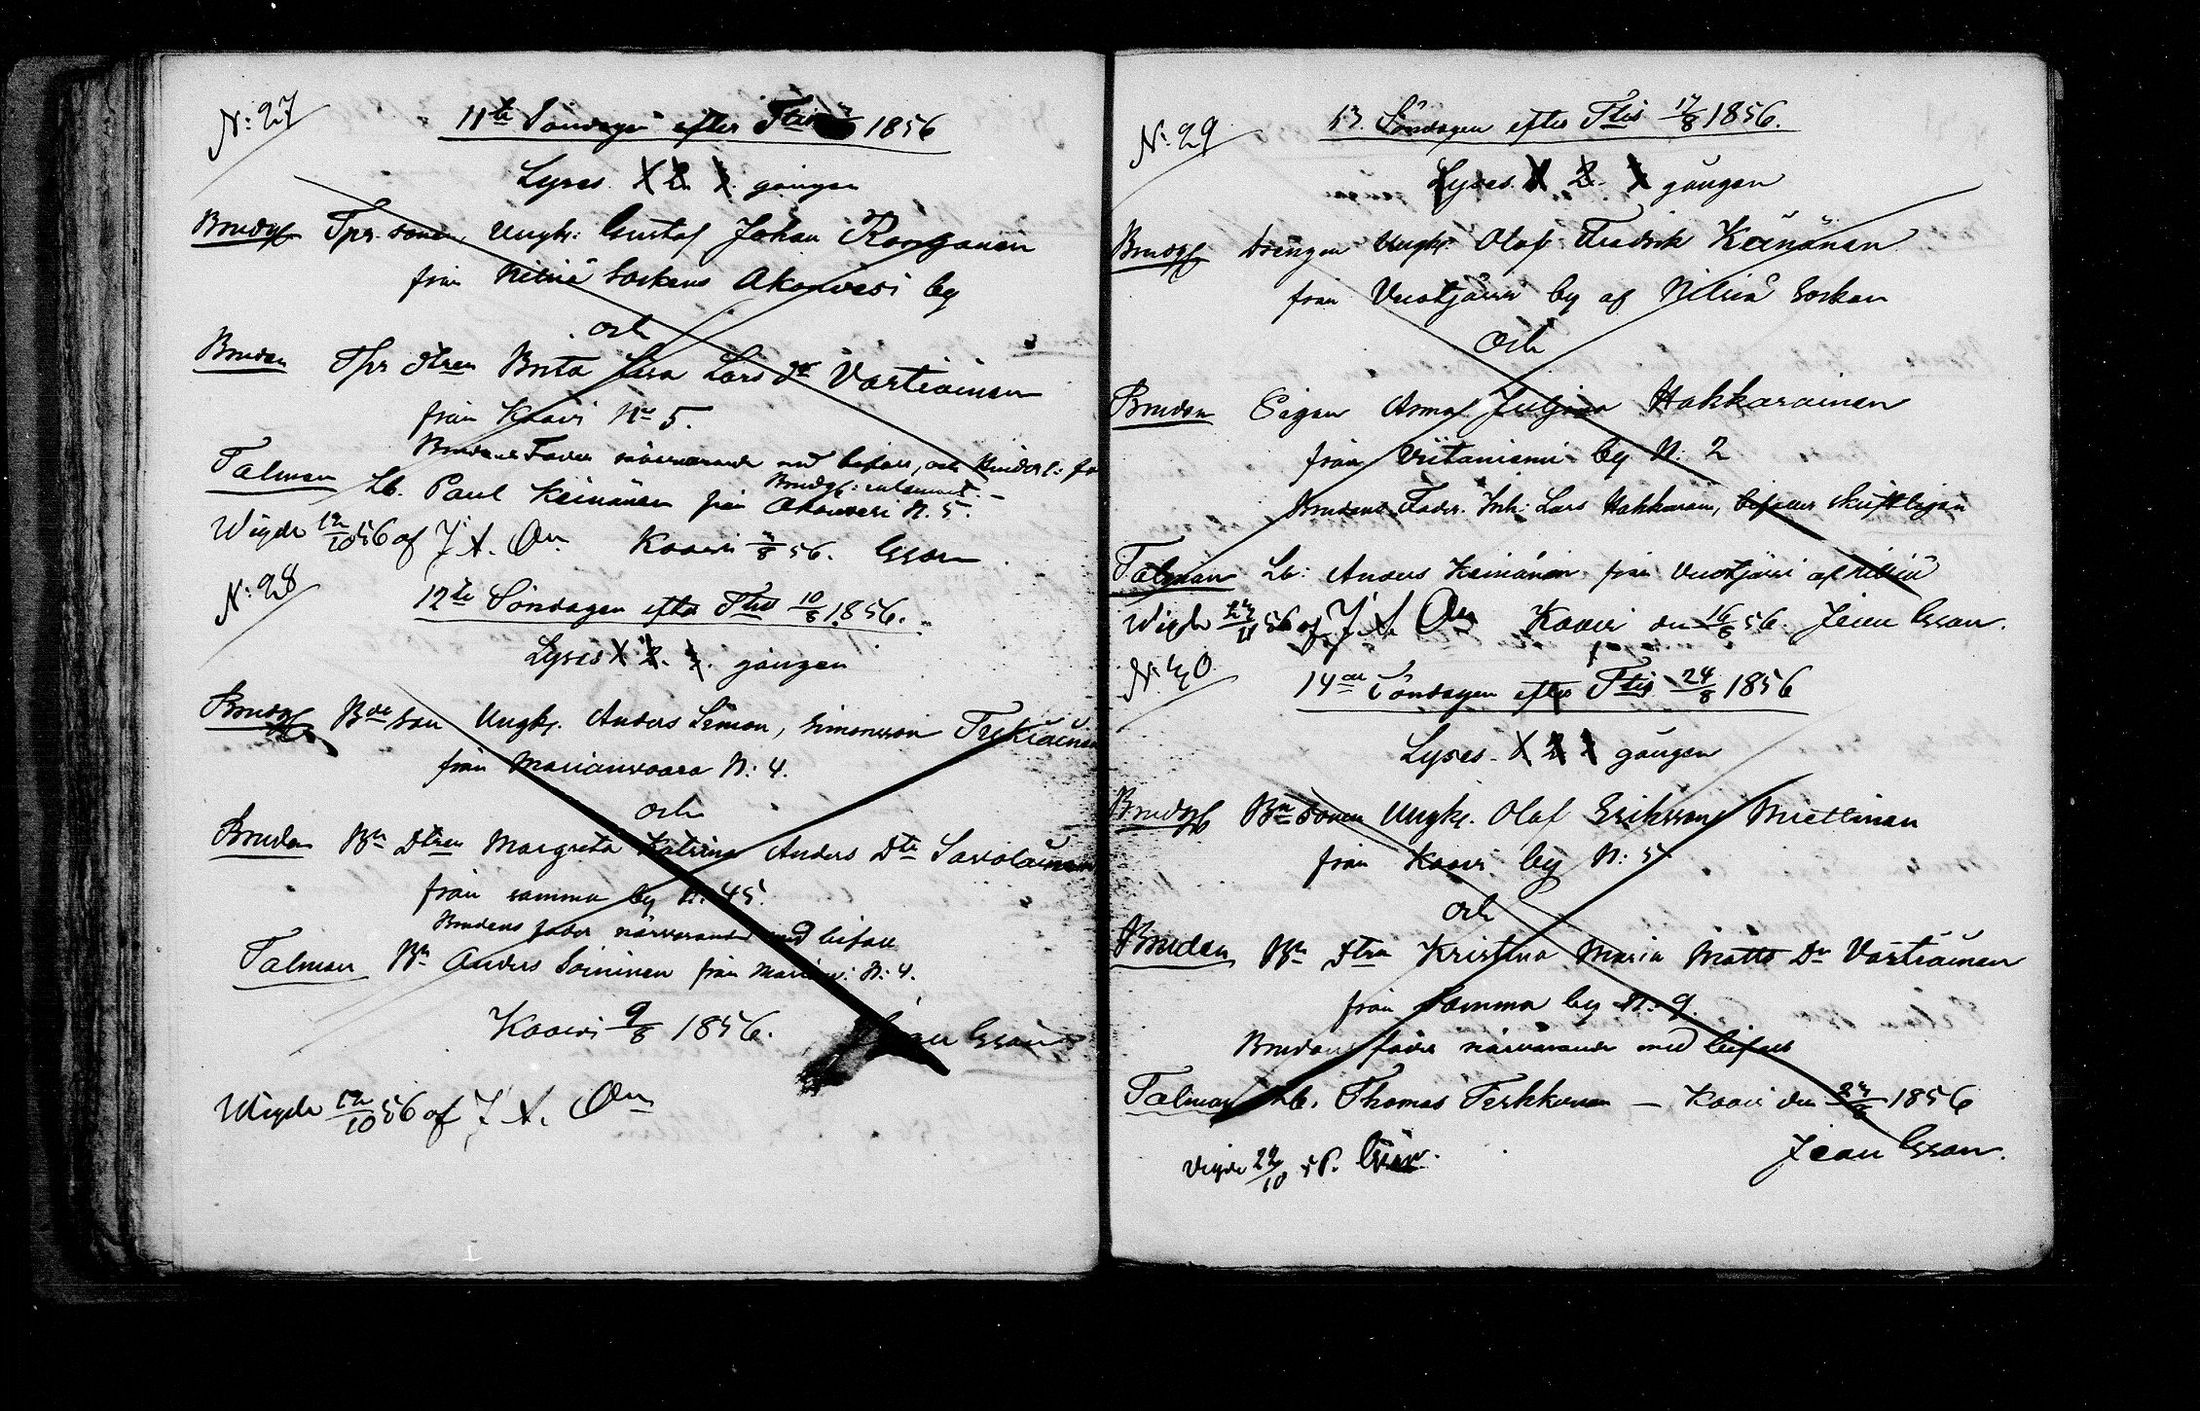 N: 27
11te Söndagen efter Ttis 1856
Lyses X 2. 3. gången
Brudgl Tpr. sonen Ungk: Gustaf Johan Korhonen
från Nilsiä Sockens Akonvesi by
och
Bruden Tpr dtren Brita Lisa Lars dr Vartiainen
från Kaavi No 5.
Brudens Fader närvarande med bifall, och
Talman Lb. Paul Keinänen från Akonvesi N. 5.
Wigde 12/10 56 af J. A. Kaavi 56.
N: 28
12te Söndagen efter Ttis 10/8 1856.
Lyses X 2. 3. gången
Brudgl Bde son Ungk. Anders Simon, Simonsson
från Marianvaara N: 4.
och
Bruden Bn Dtren Margreta Katrina Anders Dtr Savolainen
från samma by N. 45.
Brudens fader närvarande med bifall
Talman Bn Anders Soininen från Marianv: N: 4.
Kaavi 9/8 1856.
Wigde 12/10 56 af J. A.
N: 29
13. Söndagen efter Ttis 17/8 1856.
Lyses. X 2. 3 gången
Brudgl Drengen Ungk. Olof Fredrik Keinänen
från Vuotjärvi by af Nilsiä Socken
och
Bruden Pigan Anna Juljana Hakkarainen
från Viitaniemi by N. 2
Brudens Fader. Inh: Lars Hakkarain, bifaller skriftligen
Talman Lb: Anders Keinänen från Vuotjärvi af Nilsiä
Wigde 56 af J. A. Kaavi den 16/8 56. Jean
N: 30
14de Söndagen efter Ttis 24/8 1856
Lyses X 2 3 gången
Brudgl Bn sonen Ungk. Olof Eriksson Miettinen
från Kaavi by N: 5
och
Bruden Bn dtren Kristina Maria Matts Dr Vartiainen
från Samma by N. 9.
Brudens fader närvarande med bifall
Talman Lb. Thomas — Kaavi den 23/8 1856
Jean
Vigde 22/10 56.